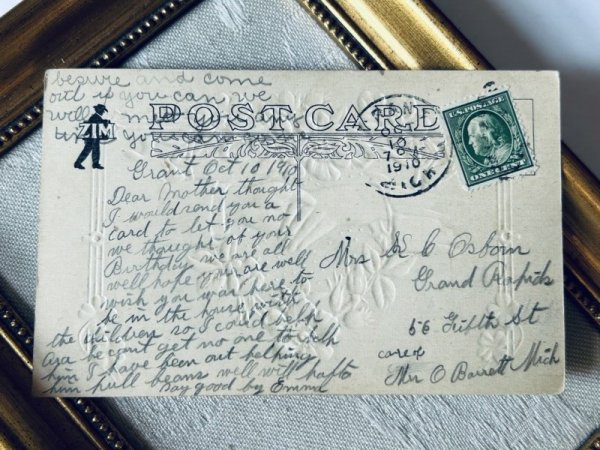 besure and come
out if you can we
will
you can
ZIM
POST CARD
OCT
10
1910
MICH
U.S. POSTAGE
ONE CENT
Grant Oct 10 1910
Dear Mother thought
I would send you a
card to let you no
we thought of your
Birthday we are all
well hope you are well
wish you was here to
be in the house with
the children so I could help
Asa he cant get no one to help
him I have been out helping
him pull beans well will hafto
Say good by Emma
Mrs C Osborn
Grand Rapids
56 Fifth St
care of
Mr O Barrett Mich